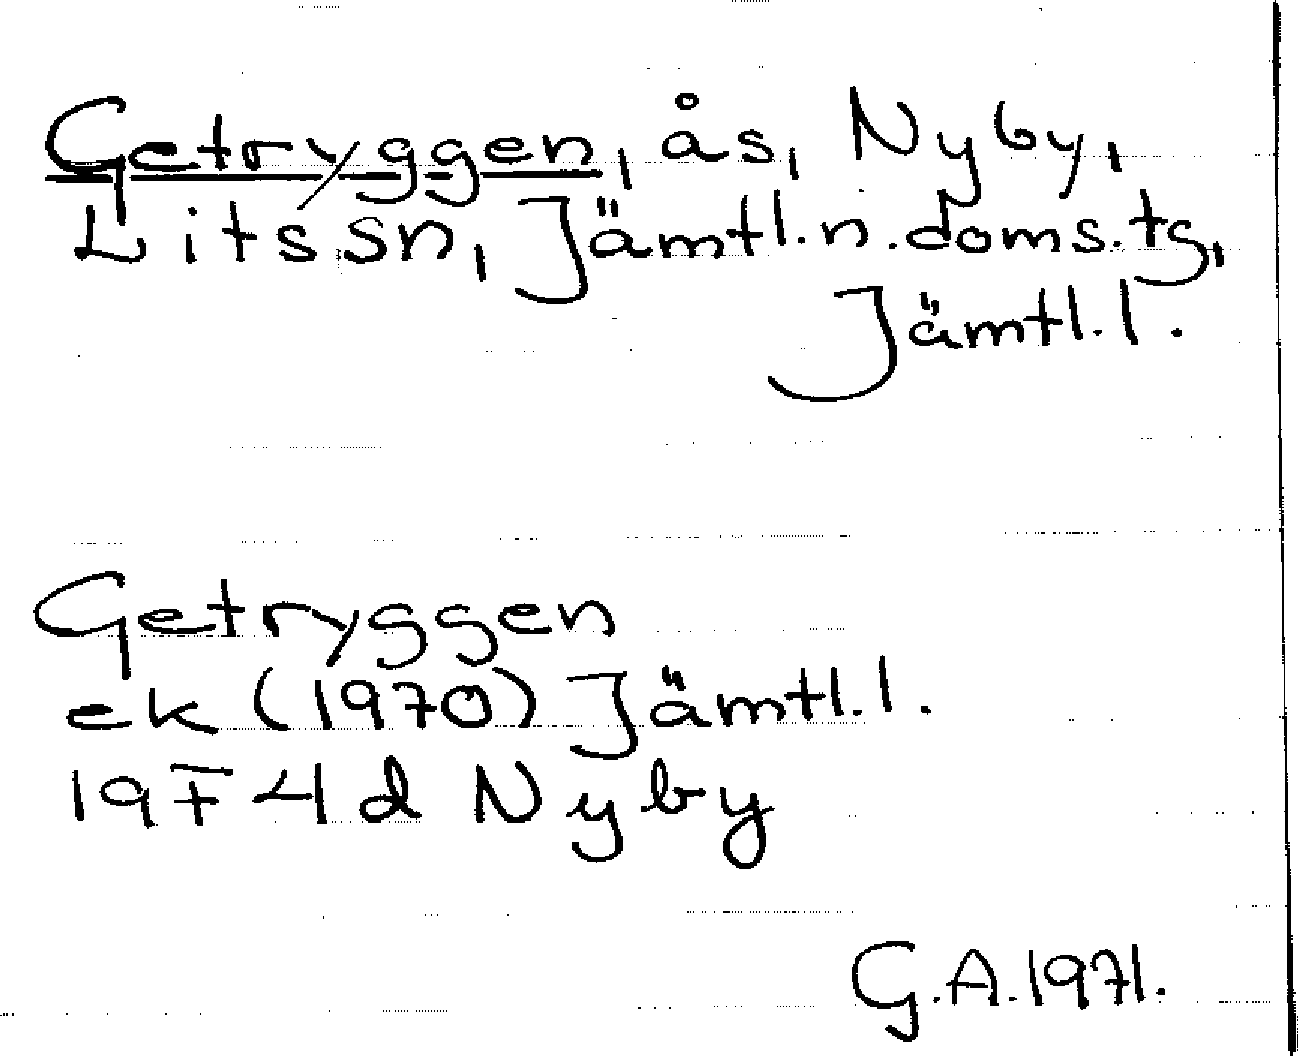 Getryggen, ås, Nyby,
Lits sn, Jämtl. n. doms. tg,
Jämtl. l.
Getryggen
ek (1970) Jämtl. l.
19F 4d Nyby
G.A. 1971.